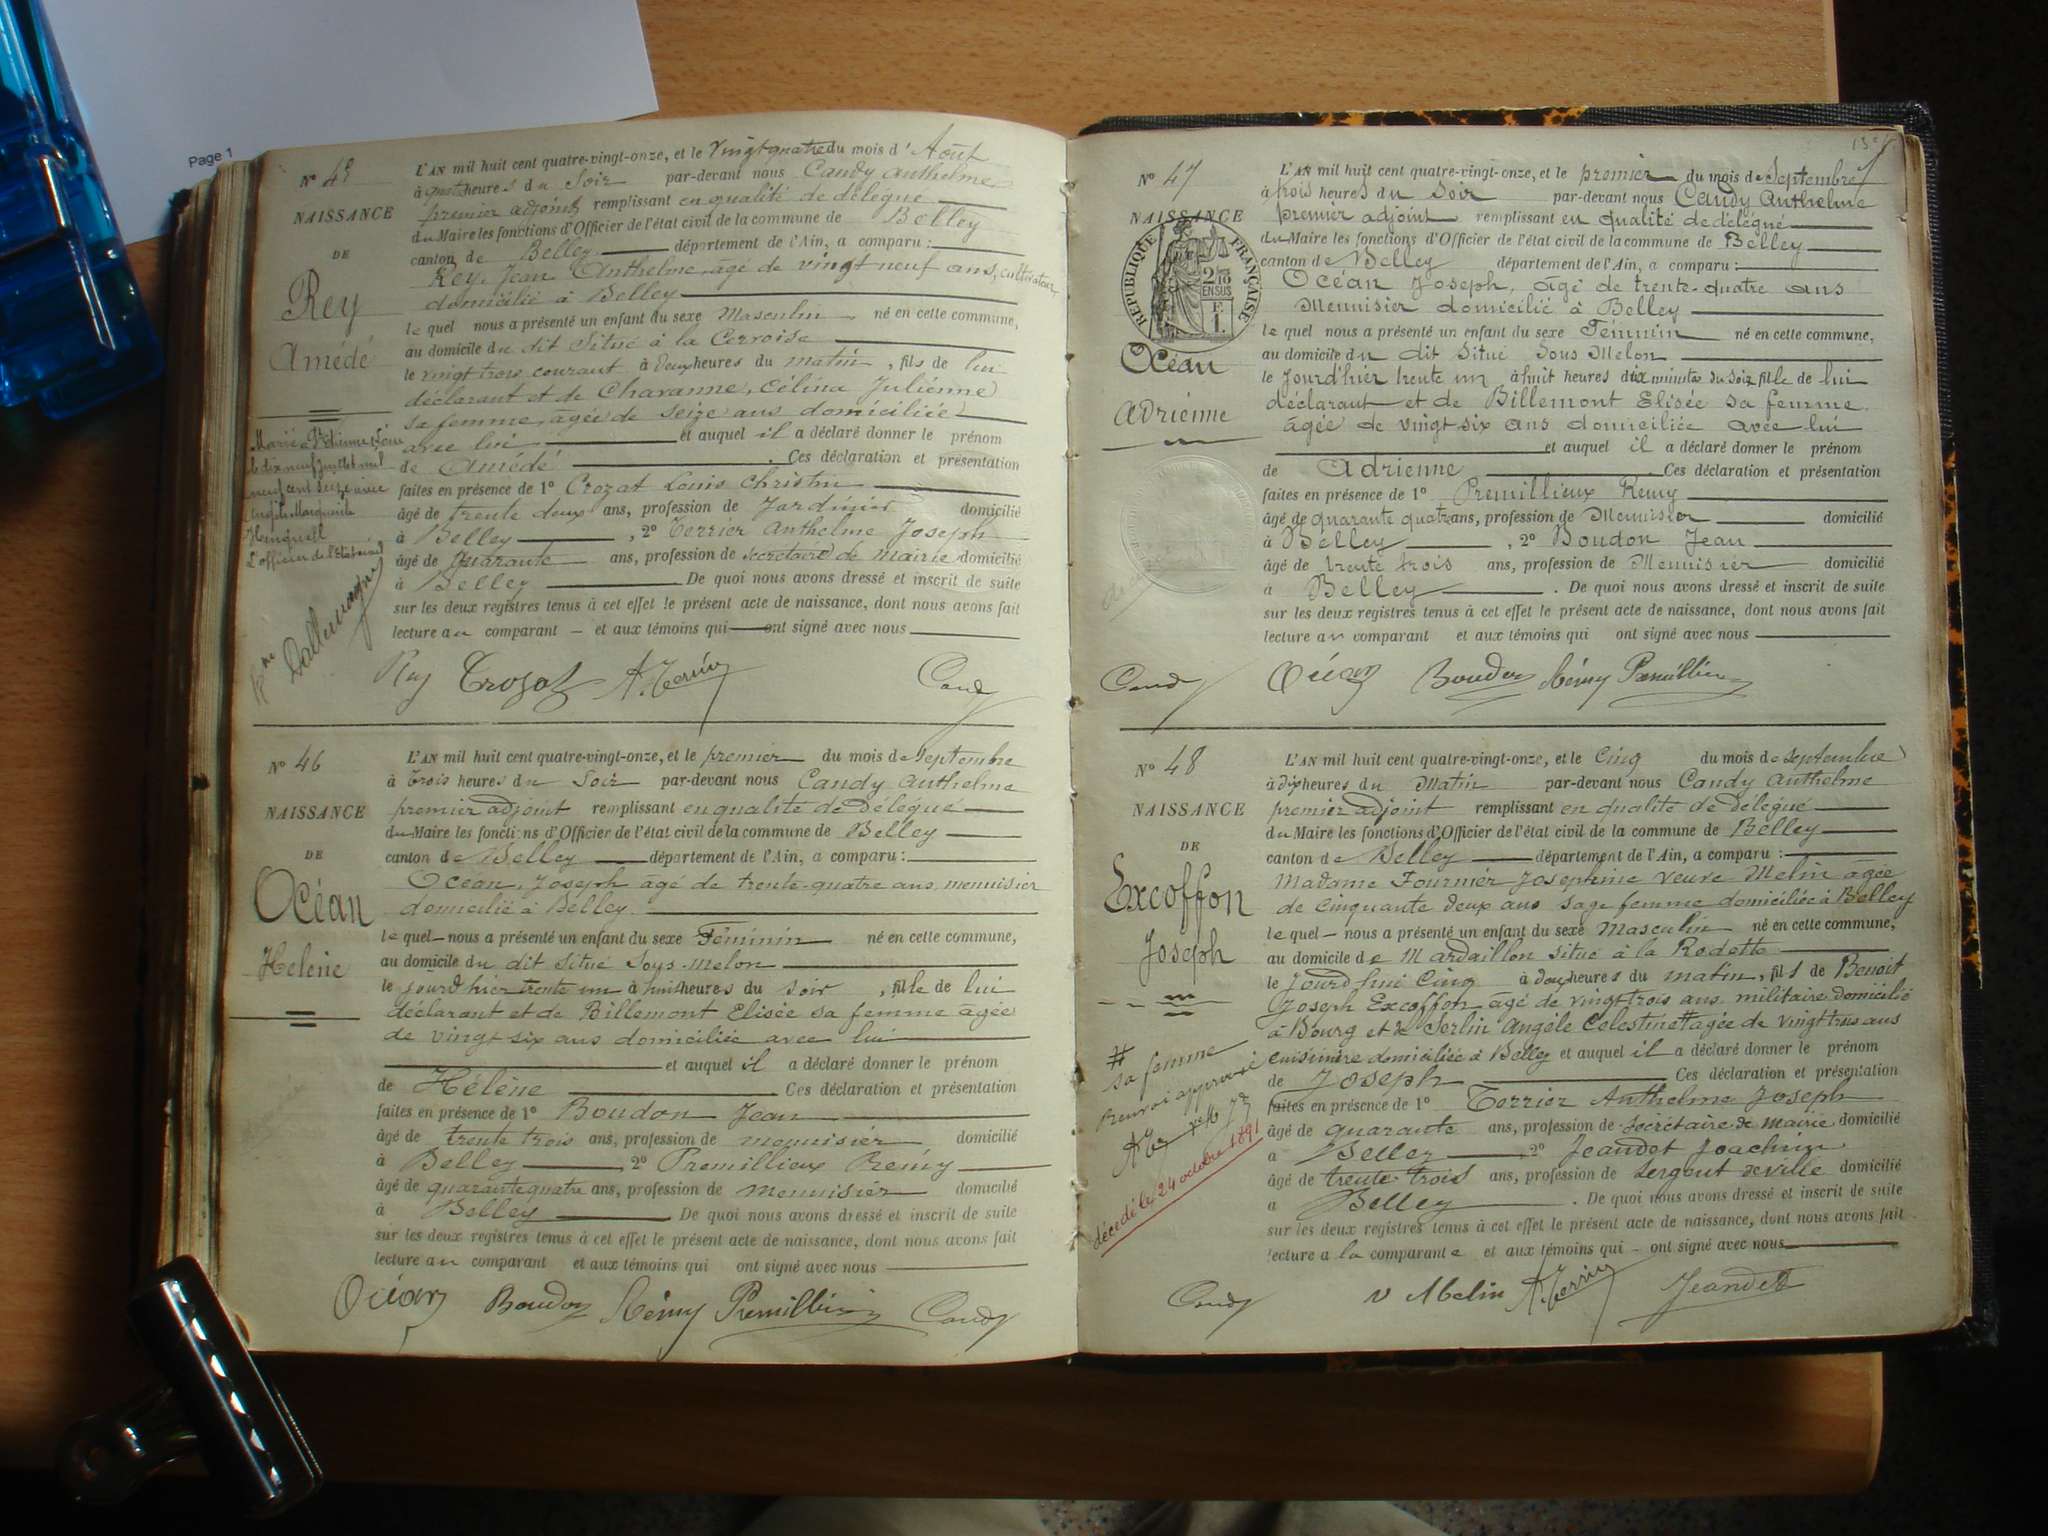 Page 1
N° 45
NAISSANCE
DE
Rey
Amédé
Marié à
le dix neuf juillet mil
neuf cent seize avec
Marguerite
L'officier de l'Etat civil
Dallemagne
L'AN mil huit cent quatre-vingt-onze, et le vingt quatre du mois d'Août
à heures du Soir par-devant nous Candy Anthelme
premier adjoint remplissant en qualité de délégué
du Maire les fonctions d'Officier de l'état civil de la commune de Belley
canton de Belley département de l'Ain, a comparu :
Rey, Jean Anthelme, âgé de vingt neuf ans, cultivateur,
domicilié à Belley
le quel nous a présenté un enfant du sexe Masculin né en cette commune,
au domicile du dit Situé à la Cerroise
le vingt trois courant à deux heures du matin, fils de lui
déclarant et de Chavanne, Célina Julienne
sa femme, âgée de seize ans domiciliée
avec lui et auquel il a déclaré donner le prénom
de Amédé . Ces déclaration et présentation
faites en présence de 1° Crozat Louis Christin
âgé de trente deux ans, profession de Jardinier domicilié
à Belley , 2° Terrier Anthelme Joseph
âgé de Quarante ans, profession de secrétaire de mairie domicilié
à Belley De quoi nous avons dressé et inscrit de suite
sur les deux registres tenus à cet effet le présent acte de naissance, dont nous avons fait
lecture au comparant et aux témoins qui ont signé avec nous
Rey Crozat A. Terrier Candy
N° 46
NAISSANCE
DE
Océan
Helene
L'AN mil huit cent quatre-vingt-onze, et le premier du mois de septembre
à trois heures du Soir par-devant nous Candy Anthelme
premier adjoint remplissant en qualité de délégué
du Maire les fonctions d'Officier de l'état civil de la commune de Belley
canton de Belley département de l'Ain, a comparu :
Océan, Joseph âgé de trente-quatre ans, menuisier
domicilié à Belley.
le quel nous a présenté un enfant du sexe Féminin né en cette commune,
au domicile du dit situé Sous-Melon
le jourd'hier trente un à huit heures du soir , fille de lui
déclarant et de Billemont Elisée sa femme âgée
de vingt six ans domiciliée avec lui
et auquel il a déclaré donner le prénom
de Hélène Ces déclaration et présentation
faites en présence de 1° Boudon Jean
âgé de trente trois ans, profession de menuisier domicilié
à Belley , 2° Premillieux Remy
âgé de quarante quatre ans, profession de menuisier domicilié
à Belley De quoi nous avons dressé et inscrit de suite
sur les deux registres tenus à cet effet le présent acte de naissance, dont nous avons fait
lecture au comparant et aux témoins qui ont signé avec nous
Océan Boudon Rémy Premillieux Candy
N° 47
NAISSANCE
RÉPUBLIQUE FRANÇAISE
2/10
EN SUS
F.
1.
Océan
Adrienne
L'AN mil huit cent quatre-vingt-onze, et le premier du mois de Septembre
à trois heures du Soir par-devant nous Candy Anthelme
premier adjoint remplissant en qualité de délégué
du Maire les fonctions d'Officier de l'état civil de la commune de Belley
canton de Belley département de l'Ain, a comparu :
Océan Joseph, âgé de trente-quatre ans
Menuisier domicilié à Belley
le quel nous a présenté un enfant du sexe Féminin né en cette commune,
au domicile du dit Situé Sous Melon
le Jourd'hier trente un à huit heures dix minutes du soir fille de lui
déclarant et de Billemont Elisée sa femme
âgée de vingt six ans domiciliée avec lui
et auquel il a déclaré donner le prénom
de Adrienne . Ces déclaration et présentation
faites en présence de 1° Premillieux Remy
âgé de quarante quatre ans, profession de Menuisier domicilié
à Belley , 2° Boudon Jean
âgé de trente trois ans, profession de Menuisier domicilié
à Belley . De quoi nous avons dressé et inscrit de suite
sur les deux registres tenus à cet effet le présent acte de naissance, dont nous avons fait
lecture au comparant et aux témoins qui ont signé avec nous
Candy Océan Boudon Rémy Premillieux
N° 48
NAISSANCE
DE
Excoffon
Joseph
# sa femme
Renvoi approuvé
décédé le 24 octobre 1891
L'AN mil huit cent quatre-vingt-onze, et le Cinq du mois de septembre
à dix heures du Matin par-devant nous Candy Anthelme
premier adjoint remplissant en qualité de délégué
du Maire les fonctions d'Officier de l'état civil de la commune de Belley
canton de Belley département de l'Ain, a comparu :
Madame Fournier Josephine veuve Melin âgée
de cinquante deux ans sage femme domiciliée à Belley
le quel nous a présenté un enfant du sexe Masculin né en cette commune,
au domicile de Mardaillon situé à la Rodette
le Jourd'hui Cinq à heures du matin, fils de Benoit
Joseph Excoffon âgé de vingt trois ans militaire domicilié
à Bourg et de Serlin Angèle Celestine # âgée de vingt trois ans
cuisinière domiciliée à Belley et auquel il a déclaré donner le prénom
de Joseph Ces déclaration et présentation
faites en présence de 1° Terrier Anthelme Joseph
âgé de quarante ans, profession de secrétaire de mairie domicilié
à Belley , 2° Jeandet Joachim
âgé de trente trois ans, profession de Sergent de ville domicilié
à Belley . De quoi nous avons dressé et inscrit de suite
sur les deux registres tenus à cet effet le présent acte de naissance, dont nous avons fait
lecture a la comparante et aux témoins qui ont signé avec nous
Candy v Melin A. Terrier Jeandet